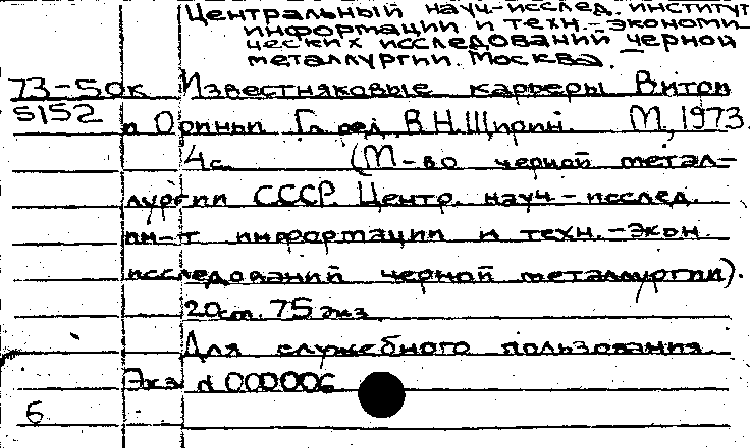 Центральный науч-исслед. институт
информации и техн.-экономи-
ческих исследований черной
металлургии. Москва.
73-50к Известняковые карьеры Витри
5152 и Ориньи. Гл. ред. В.Н.Ширин. М, 1973.
4с. (М-во черной метал-
лургии СССР. Центр. науч-исслед.
ин-т информации и техн.-экон.
исследований черной металлургии).
20см. 75 экз.
Для служебного пользования
Экз. № 000006
6